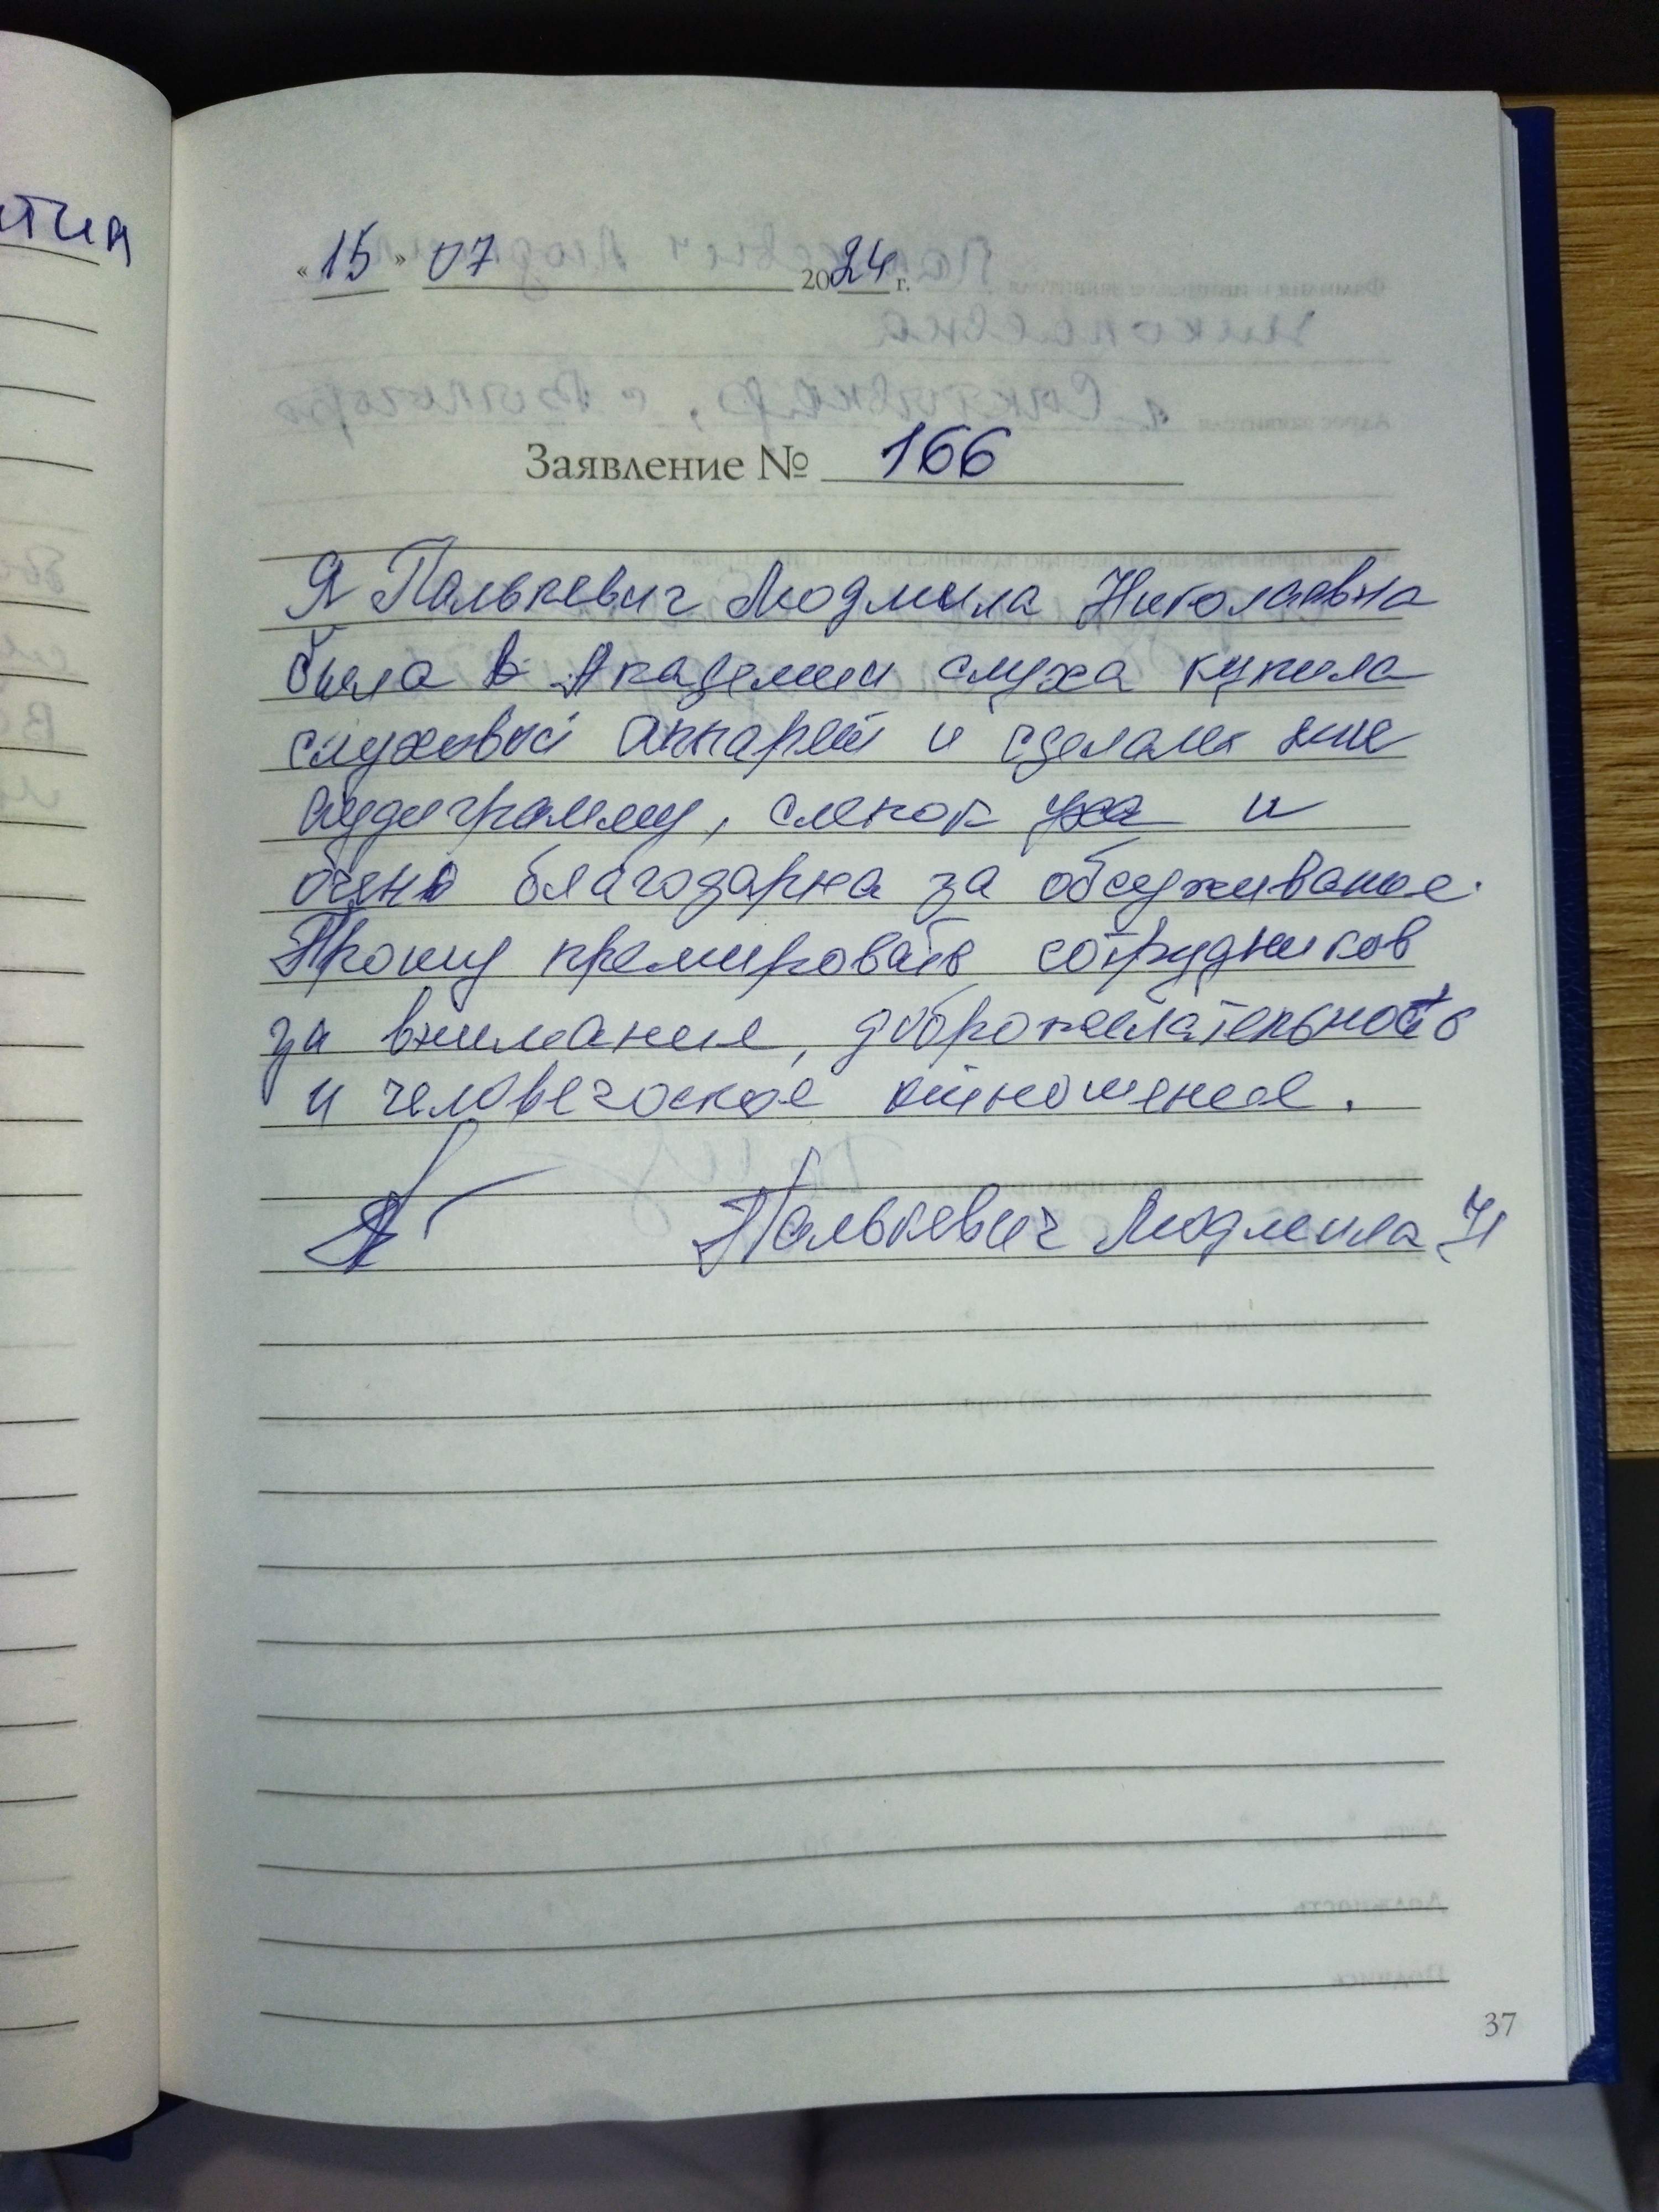 тия
« 15 » 07 2024 г.
Заявление № 166
Я Палькевич Людмила Николаевна
была в Академии слуха купила
слуховой аппарат и сделали мне
аудиграмму, слепок уха и
очень благодарна за обслуживание.
Прошу премировать сотрудников
за внимание, доброжелательность
и человеческое отношение.
Палькевич Людмила Н
37